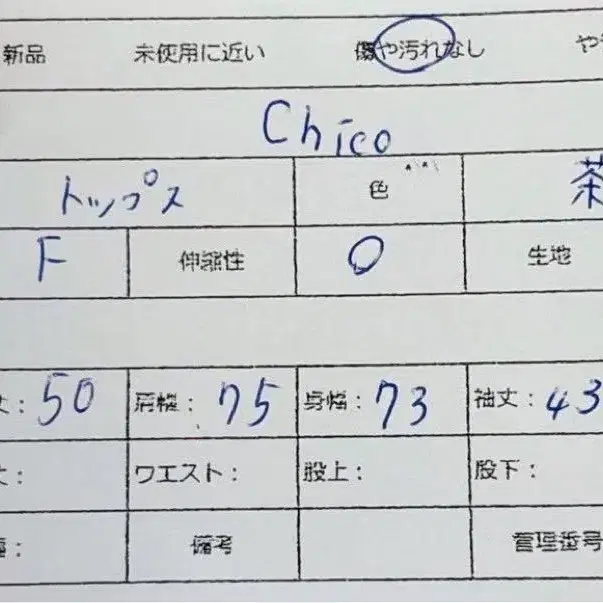 新品 未使用に近い 傷や汚れなし や
Chico
トップス 色 茶
F 伸縮性 O 生地
丈：50 肩幅：75 身幅：73 袖丈：43
丈： ワエスト： 股上： 股下：
幅： 備考 管理番号